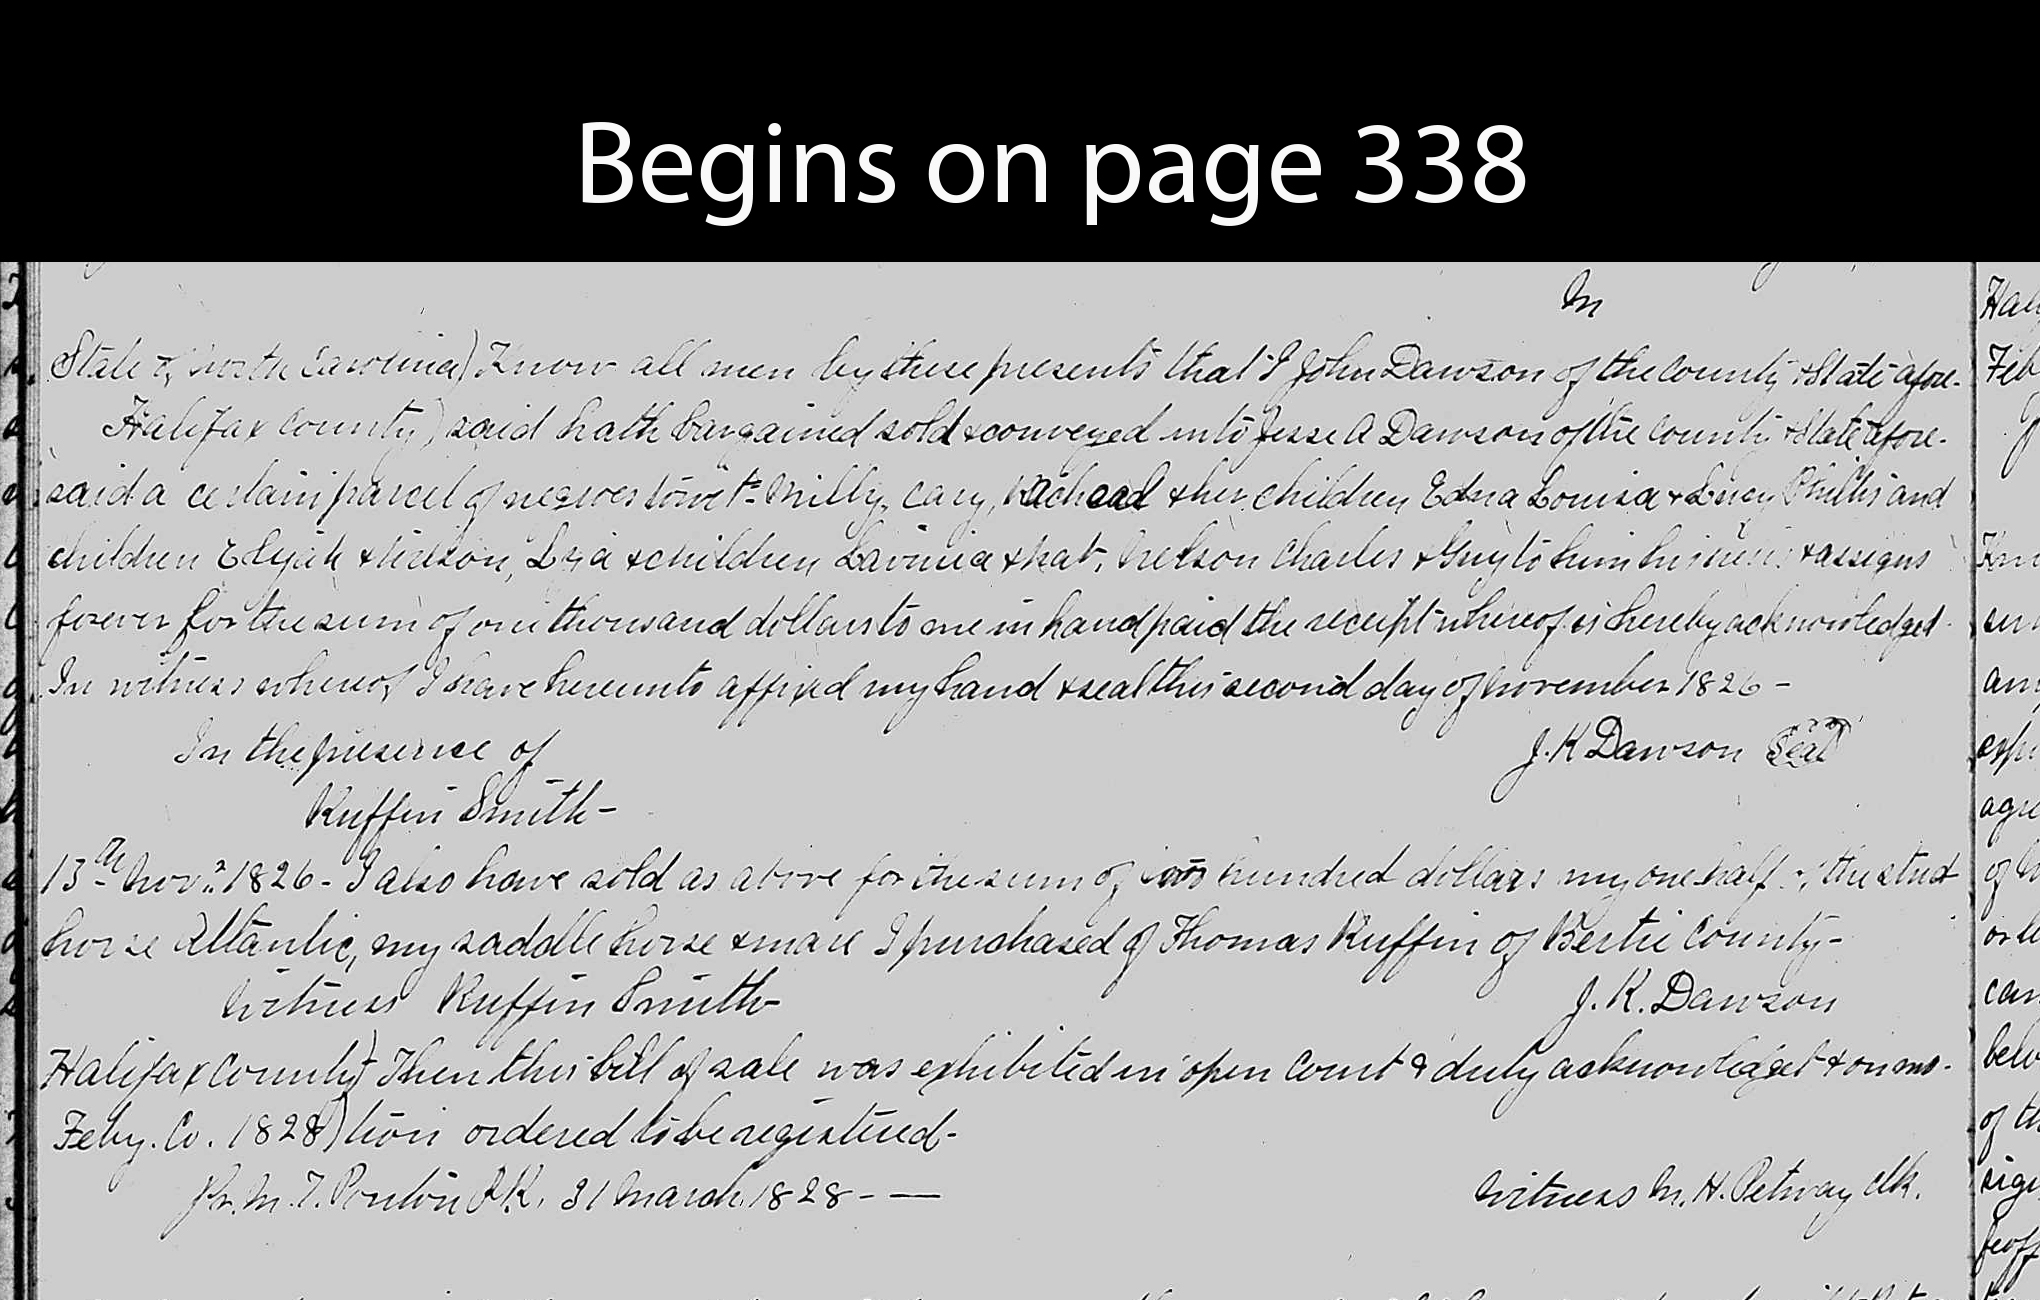 Begins on page 338
State of North Carolina) Know all men by these presents that I John Dawson of the County & State afore-
Halifax County) said hath bargained sold & conveyed unto Jesse A Dawson of the County & State afore-
said a certain parcel of negroes towit- Milly, Cary, & her children Edna Louisa & Lucy Phillis and
children Elijah & Nelson, & children Lavinia & Kat, Nelson Charles & Guy to him his heirs & assigns
forever for the sum of one thousand dollars to me in hand paid the receipt whereof is hereby acknowledged
In witness whereof I have hereunto affixed my hand & seal this second day of November 1826 -
In the presence of J. K Dawson Seal
Ruffin Smith -
13th Novr. 1826 - I also have sold as above for the sum of two hundred dollars my one half of the stud
horse Atlantic, my saddle horse & mare I purchased of Thomas Ruffin of Bertie County -
Witness Ruffin Smith J. K. Dawson
Halifax County) Then this bill of sale was exhibited in open Court & duly acknowledged & on mo-
Feby. Co. 1828) tion ordered to be registered -
Pr. M. T. Ponton P.R. 31 March 1828 - —
Witness M. H. Petway Clk.